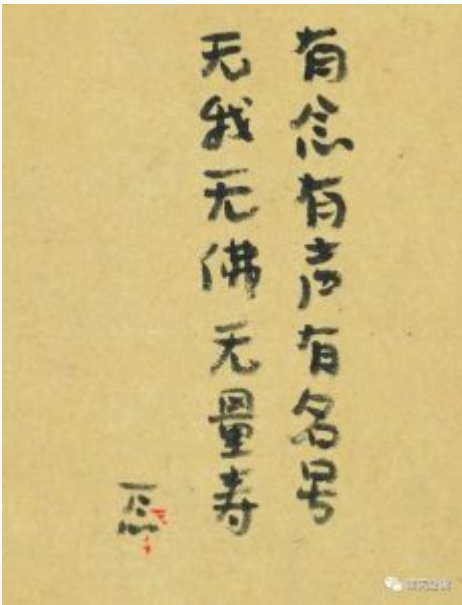 有念有声有名号
无我无佛无量寿
一念